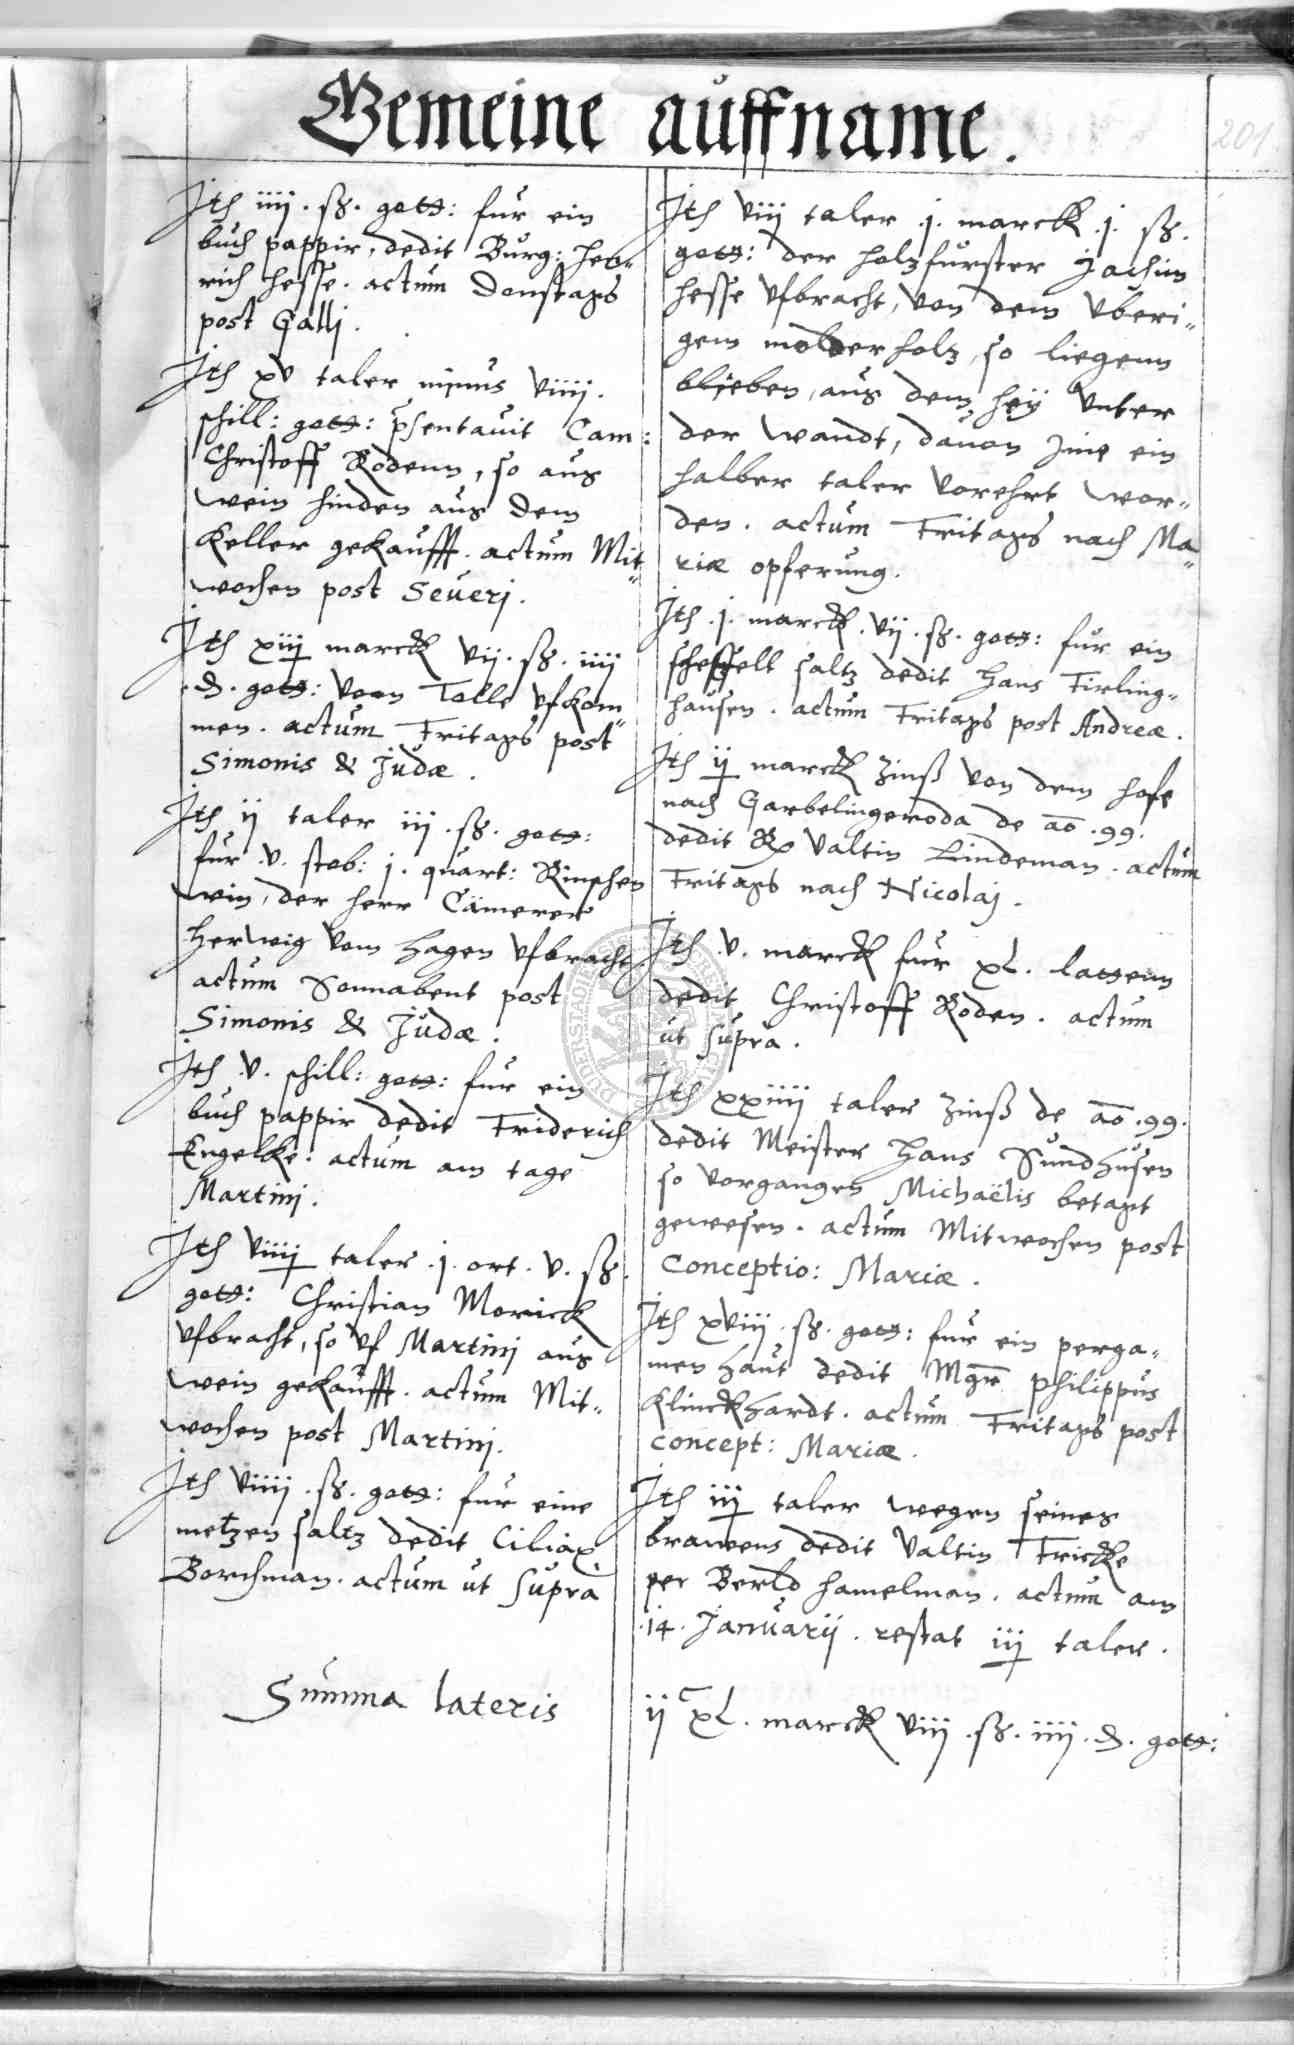 Gemeine auffname.
201
Ith iiij. ß. gott: fur ein
buch pappir, dedit Burg: Hen„
rich Hesse. actum Donstags
post Gallj.
Ith xv taler minus viiij.
schill: gott: psentauit Cam:
Christoff Rodenn, so aus
wein hinden aus dem
Keller gekaufft. actum Mit„
wochen post Seuerj.
Ith xiij marck vij. ß. iiij
.₰. gott: vonn Tolle vfkom„
men. actum Fritags post
Simonis & Judæ.
Ith ij taler iij. ß. gott:
fur .v. stob: j. quart: Rinschen
wein, der Herr Cämerer
Herwig vom Hagen vfbracht.
actum Sonnabent post
Simonis & Judæ.
Ith .v. schill: gott: fur ein
buch pappir dedit Friderich
Engelke. actum am tage
Martinj.
Ith viiij taler .j. ort. v. ß.
gott: Christian Morick
vfbracht, so vf Martinj aus
wein gekaufft. actum Mit„
wochen post Martinj.
Ith viiij. ß. gott: fur eine
metzen saltz dedit Ciliax
Borchman. actum ut supra
Ith viij taler .j. marck .j. ß.
gott: der holtzfurster Jochim
Hesse vfbracht, von dem vberi„
gem molder holtz, so liegenn
blieben, aus dem Heÿ vnter
der wandt, dauon Jme ein
halber taler vorehrt wor„
den. actum Fritags nach Ma„
riæ opferung.
Ith .j. marck. vij. ß. gott: fur ein
scheffell saltz dedit Hans Firling„
hausen. actum Fritags post Andreæ.
Ith ij marck zinß von dem Hofe
nach Garbelingeroda de ao .99.
dedit Valtin Lindeman. actum
Fritags nach Nicolaj.
Ith .v. marck fur xL. lattenn
dedit Christoff Roden. actum
ut supra.
Ith xxiiij taler zinß de ao .99.
dedit Meister Hans Sundhusen
so vorgangen Michaëlis betagt
gewesen. actum Mitwochen post
Conceptio: Mariæ.
Ith xviij. ß. gott: fur ein perga„
men haut dedit Mgr Philippus
Klinckhardt. actum Fritags post
concept: Mariæ.
Ith iij taler wegen seines
brauwens dedit Valtin Fricke
per Berld Hamelman. actum am
.14. Januarij. restat iij taler.
Summa lateris
ij c xL. marck viij .ß. iiij .₰. gott: